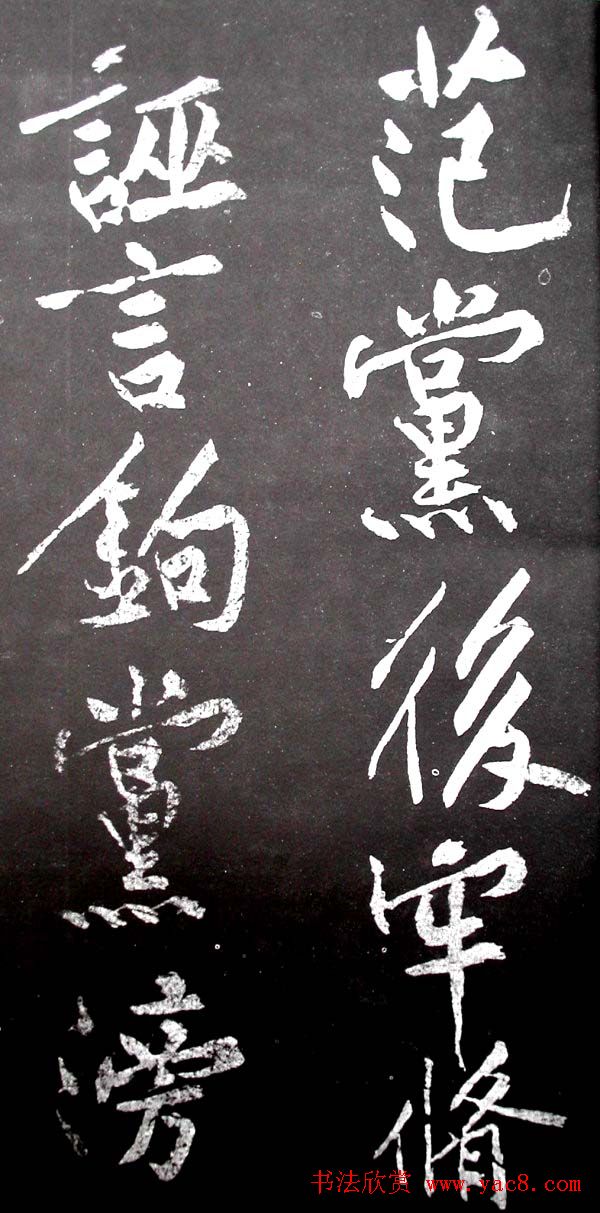 范黨後牢脩
誣言鉤黨滂
书法欣赏 www.yac8.com